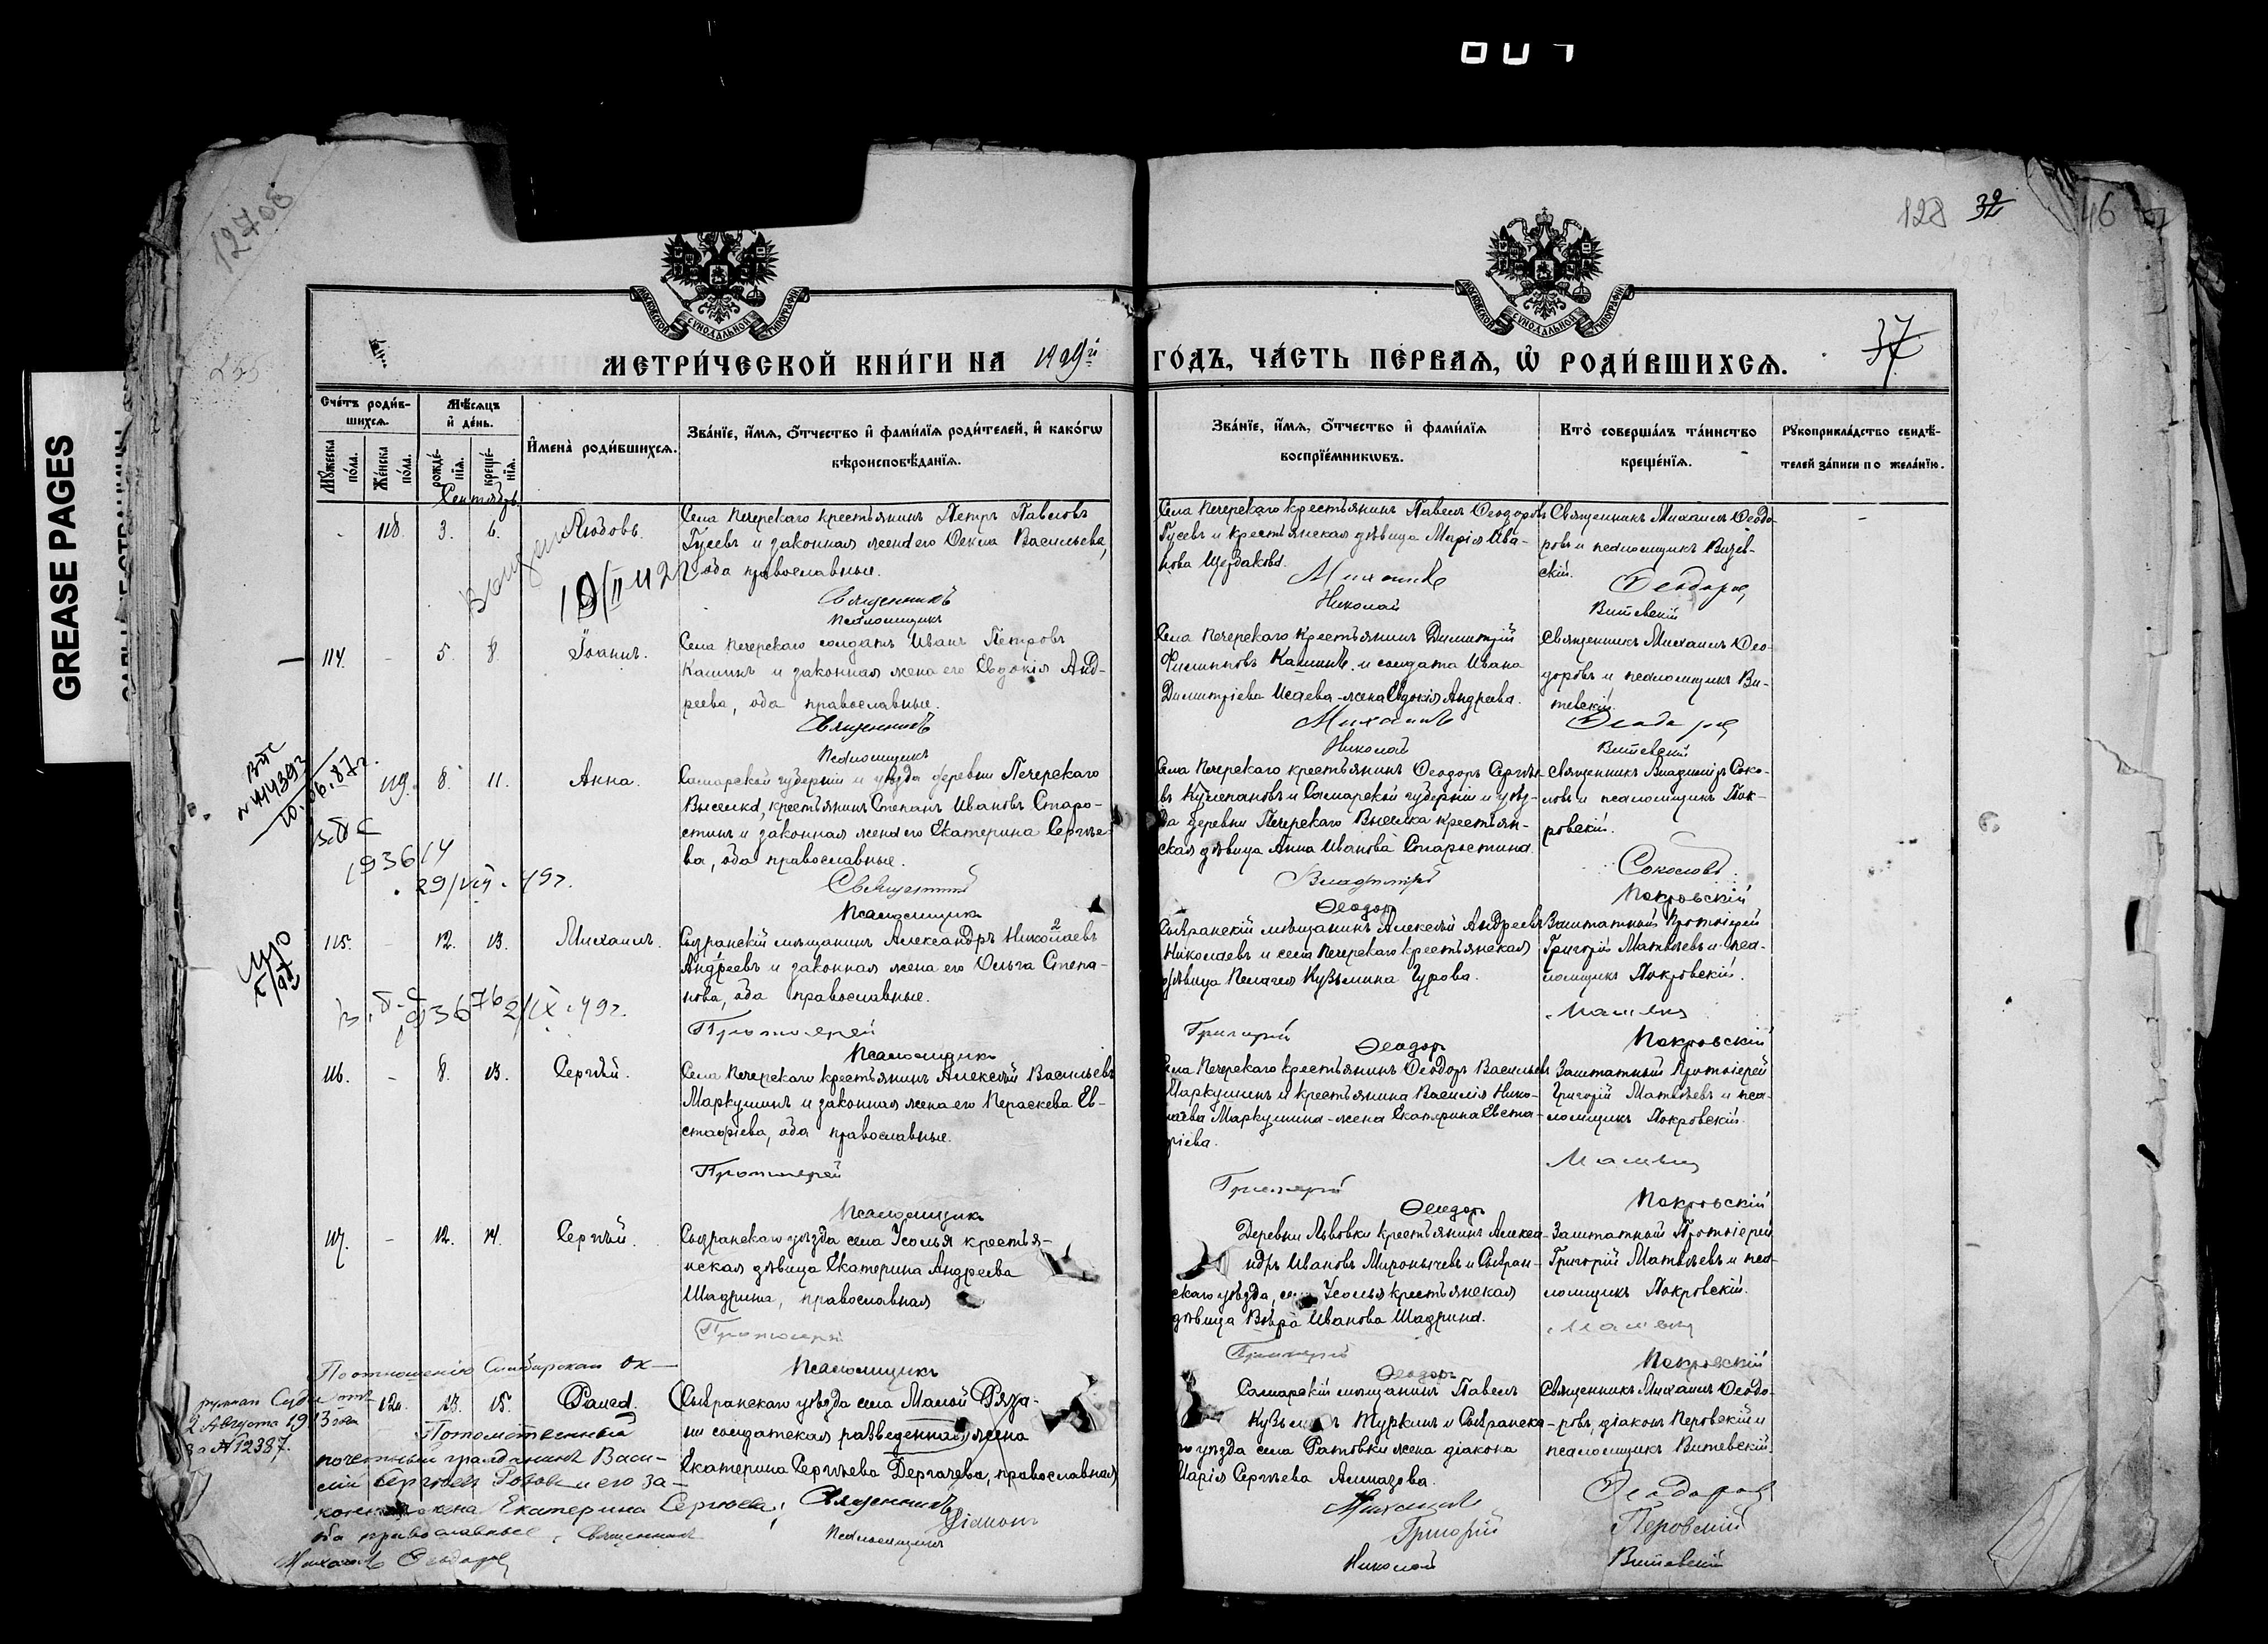 GREASE PAGES
12706
128 32 46
37
МОСКОВСКОЙ СѴНОДАЛЬНОЙ ТИПОГРАФІИ
МОСКОВСКОЙ СѴНОДАЛЬНОЙ ТИПОГРАФІИ
МЕТРИ́ЧЕСКОЙ КНИ́ГИ НА
ГО́ДЪ, ЧА́СТЬ ПЕ́РВАѦ, Ѡ҆ РОДИ́ВШИХСѦ.
Сче́тъ роди́в-
шихсѧ.
Мꙋ́жеска по́ла.
Же́нска по́ла.
Мѣ́сѧцъ
и҆ де́нь.
рожде́-
нїѧ.
креще́-
нїѧ.
И҆мена̀ роди́вшихсѧ.
Зва́нїе, и҆́мѧ, ѻ҆́тчество и҆ фами́лїѧ роди́телей, и҆ како́гѡ
вѣроисповѣ́данїѧ.
Зва́нїе, и҆́мѧ, ѻ҆́тчество и҆ фами́лїѧ
воспрїе́мникѡвъ.
Кто̀ соверша́лъ та́инство
креще́нїѧ.
Рꙋкоприкла́дство свидѣ́-
телей за́писи по жела́нїю.
Сентябрь
118. 3. 6. Любовь.
Села Печерскаго крестьянинъ Петръ Павловъ
Гусевъ и законная жена его Ѳекла Васильева,
оба православные.
Священникъ
Псаломщикъ
Села Печерскаго крестьянинъ Павелъ Ѳеодоровъ
Гусевъ и крестьянская дѣвица Марія Ива-
нова Щербакова.
Михаилъ
Николай
Священникъ Михаилъ Ѳеодо-
ровъ и псаломщикъ Витев-
скій.
Ѳеодоровъ
Витевскій
114. - 5. 8. Іоаннъ.
Села Печерскаго солдатъ Иванъ Петровъ
Кашинъ и законная жена его Евдокія Анд-
реева, оба православные.
Священникъ
Псаломщикъ
Села Печерскаго крестьянинъ Димитрій
Филипповъ Кашинъ и солдата Ивана
Димитріева Исаева жена Евдокія Андреева.
Михаилъ
Николай
Священникъ Михаилъ Ѳео-
доровъ и псаломщикъ Ви-
тевскій.
Ѳеодоровъ
Витевскій
119. 8. 11. Анна.
Самарской губерніи и уѣзда деревни Печерскаго
Выселка, крестьянинъ Степанъ Ивановъ Старо-
стинъ и законная жена его Екатерина Сергѣе-
ва, оба православные.
Священникъ
Псаломщикъ
Села Печерскаго крестьянинъ Ѳеодоръ Сергѣе-
въ и Самарской губерніи и уѣз-
да деревни Печерскаго Выселка крестьян-
ская дѣвица Анна Иванова Старостина.
Владиміръ
Ѳеодоръ
Священникъ Владиміръ Соко-
ловъ и псаломщикъ Пок-
ровскій.
Соколовъ
Покровскій
193614
29/VII. 49г.
115. - 12. 13. Михаилъ.
Сызранскій мѣщанинъ Александръ Николаевъ
Андреевъ и законная жена его Ольга Степа-
нова, оба православные.
Протоіерей
Псаломщикъ
Сызранскій мѣщанинъ Алексѣй Андреевъ
Николаевъ и села Печерскаго крестьянская
дѣвица Пелагея Кузьмина Гурова.
Григорій
Ѳеодоръ
Заштатный Протоіерей
Григорій Матвѣевъ и пса-
ломщикъ Покровскій.
Матвѣевъ
Покровскій
116. - 8. 13. Сергѣй.
Села Печерскаго крестьянинъ Алексѣй Васильевъ
Маркушинъ и законная жена его Параскева Ев-
стафіева, оба православные.
Протоіерей
Псаломщикъ
Села Печерскаго крестьянинъ Ѳеодоръ Васильевъ
Маркушинъ и крестьянина Василія Нико-
лаева Маркушина жена Екатерина Евста-
фіева.
Григорій
Ѳеодоръ
Заштатный Протоіерей
Григорій Матвѣевъ и пса-
ломщикъ Покровскій.
Матвѣевъ
Покровскій
117. - 12. 14. Сергѣй.
Сызранскаго уѣзда села Усолья крестья-
нская дѣвица Екатерина Андреева
Шадрина, православная
Протоіерей
Псаломщикъ
Деревни Львовки крестьянинъ Алекса-
ндръ Ивановъ Миронычевъ и Сызран-
скаго уѣзда, села Усолья крестьянская
дѣвица Вѣра Иванова Шадрина.
Григорій
Ѳеодоръ
Заштатный Протоіерей
Григорій Матвѣевъ и пса-
ломщикъ Покровскій.
Матвѣевъ
Покровскій
120. 13. 15. Раиса.
Сызранскаго уѣзда села Малой Ряза-
ни солдатская разведенная жена
Екатерина Сергѣева Дергачева, православная
Священникъ
Діаконъ
Псаломщикъ
Самарскій мѣщанинъ Павелъ
Туркинъ и Сызранска-
го уѣзда села Ратовки жена діакона
Марія Сергѣева Алмазова.
Михаилъ
Григорій
Николай
Священникъ Михаилъ Ѳеодо-
ровъ, діаконъ Перовскій и
псаломщикъ Витевскій.
Ѳеодоровъ
Перовскій
Витевскій
По отношенію Симбирскаго Ок-
ружнаго Суда отъ
2 Августа 1913 года
За № 12387.
Потомственный
почетный гражданинъ Васи-
лій Сергѣевъ и его за-
конная жена Екатерина Сергѣева,
оба православные. Священникъ
Михаилъ Ѳеодоровъ